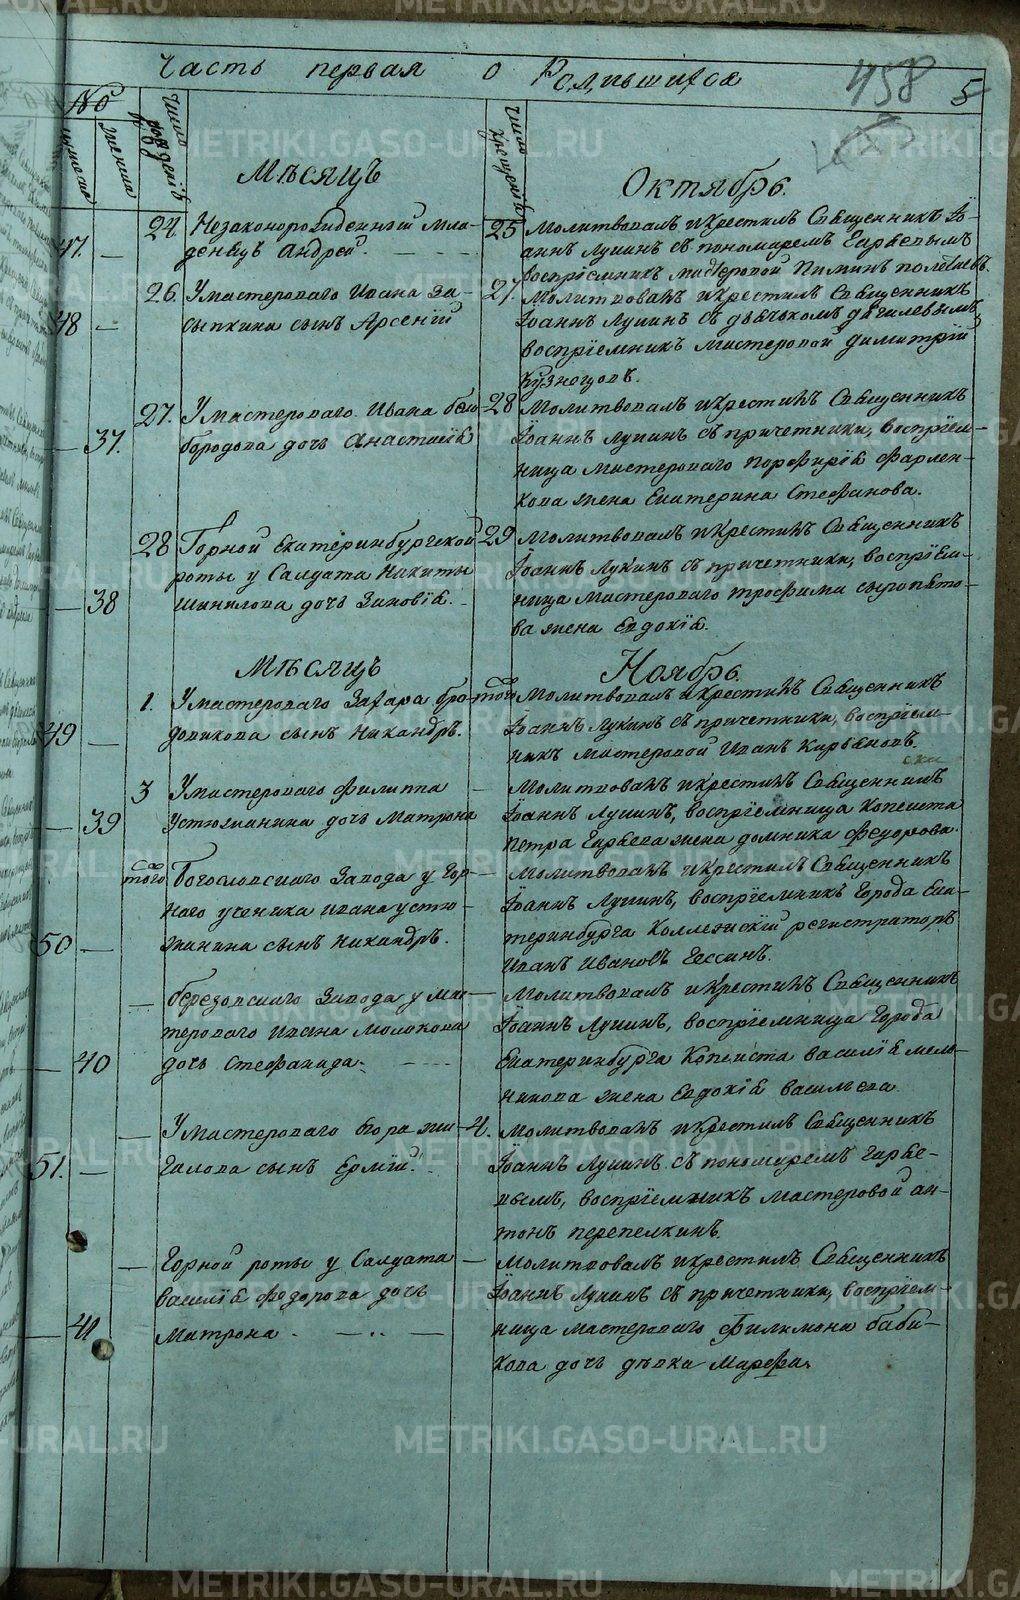 Часть первая о Родившихся
458
5
№
мужеска
женска
число рожденія
число крещенія
Мѣсяцъ
Октябрь.
47. — 24. Незаконорожденный мла-
денецъ Андрей.
25 Молитвовалъ и крестилъ Священникъ Іо-
аннъ Лукинъ съ пономаремъ
воспріемникъ мастеровой Пиминъ
48 — 26. У мастероваго Ивана За-
сыпкина сынъ Арсеній
27. Молитвовалъ и крестилъ Священникъ
Іоаннъ Лукинъ съ дьячькомъ
воспріемникъ мастеровой Димитрій
Кузнецовъ.
— 37. 27. У мастероваго Ивана Бело-
бородова дочь Анастасія
28 Молитвовалъ и крестилъ Священникъ
Іоаннъ Лукинъ съ причетники, воспріем-
ница мастероваго Порфирія Фарлен-
кова жена Екатерина Стефанова.
— 38 28 Горной Екатеринбургской
роты у Салдата Никиты
Шипилова дочь Зиновія.
29 Молитвовалъ и крестилъ Священникъ
Іоаннъ Лукинъ съ причетники, воспріем-
ница мастероваго Трофима Сыропято-
ва жена Евдокія.
Мѣсяцъ
Ноябрь.
49 — 1. У мастероваго Захара Бро-
довикова сынъ Никандръ.
того Молитвовалъ и крестилъ Священникъ
Іоаннъ Лукинъ съ причетники, воспріем-
никъ мастеровой Иванъ
— 39 3 У мастероваго Филиппа
Устюжанина дочь Матрона
— Молитвовалъ и крестилъ Священникъ
Іоаннъ Лукинъ, воспріемница Копеиста
Петра жена Домника Федорова.
50 — того Богословскаго Завода у Гор-
наго ученика Ивана Устю-
жанина сынъ Никандръ.
— Молитвовалъ и крестилъ Священникъ
Іоаннъ Лукинъ, воспріемникъ Города Ека-
теринбурга Коллежскій регистраторъ
Иванъ Ивановъ Гессинъ.
— 40 — Березовскаго Завода у мас-
тероваго Ивана Молокова
дочь Стефанида.
— Молитвовалъ и крестилъ Священникъ
Іоаннъ Лукинъ, воспріемница Города
Екатеринбурга Копеиста Василія Мель-
никова жена Евдокія Васильева
51. — — У мастероваго Егора Жи-
галова сынъ Ермій.
4. Молитвовалъ и крестилъ Священникъ
Іоаннъ Лукинъ съ пономаремъ
воспріемникъ мастеровой Ан-
тонъ Перепелкинъ.
— 41 — Горной роты у Салдата
Василія Федорова дочь
Матрона.
— Молитвовалъ и крестилъ Священникъ
Іоаннъ Лукинъ съ причетники, воспріем-
ница мастероваго Филимона Баби-
кова дочь дѣвка Марфа.
METRIKI.GASO-URAL.RU